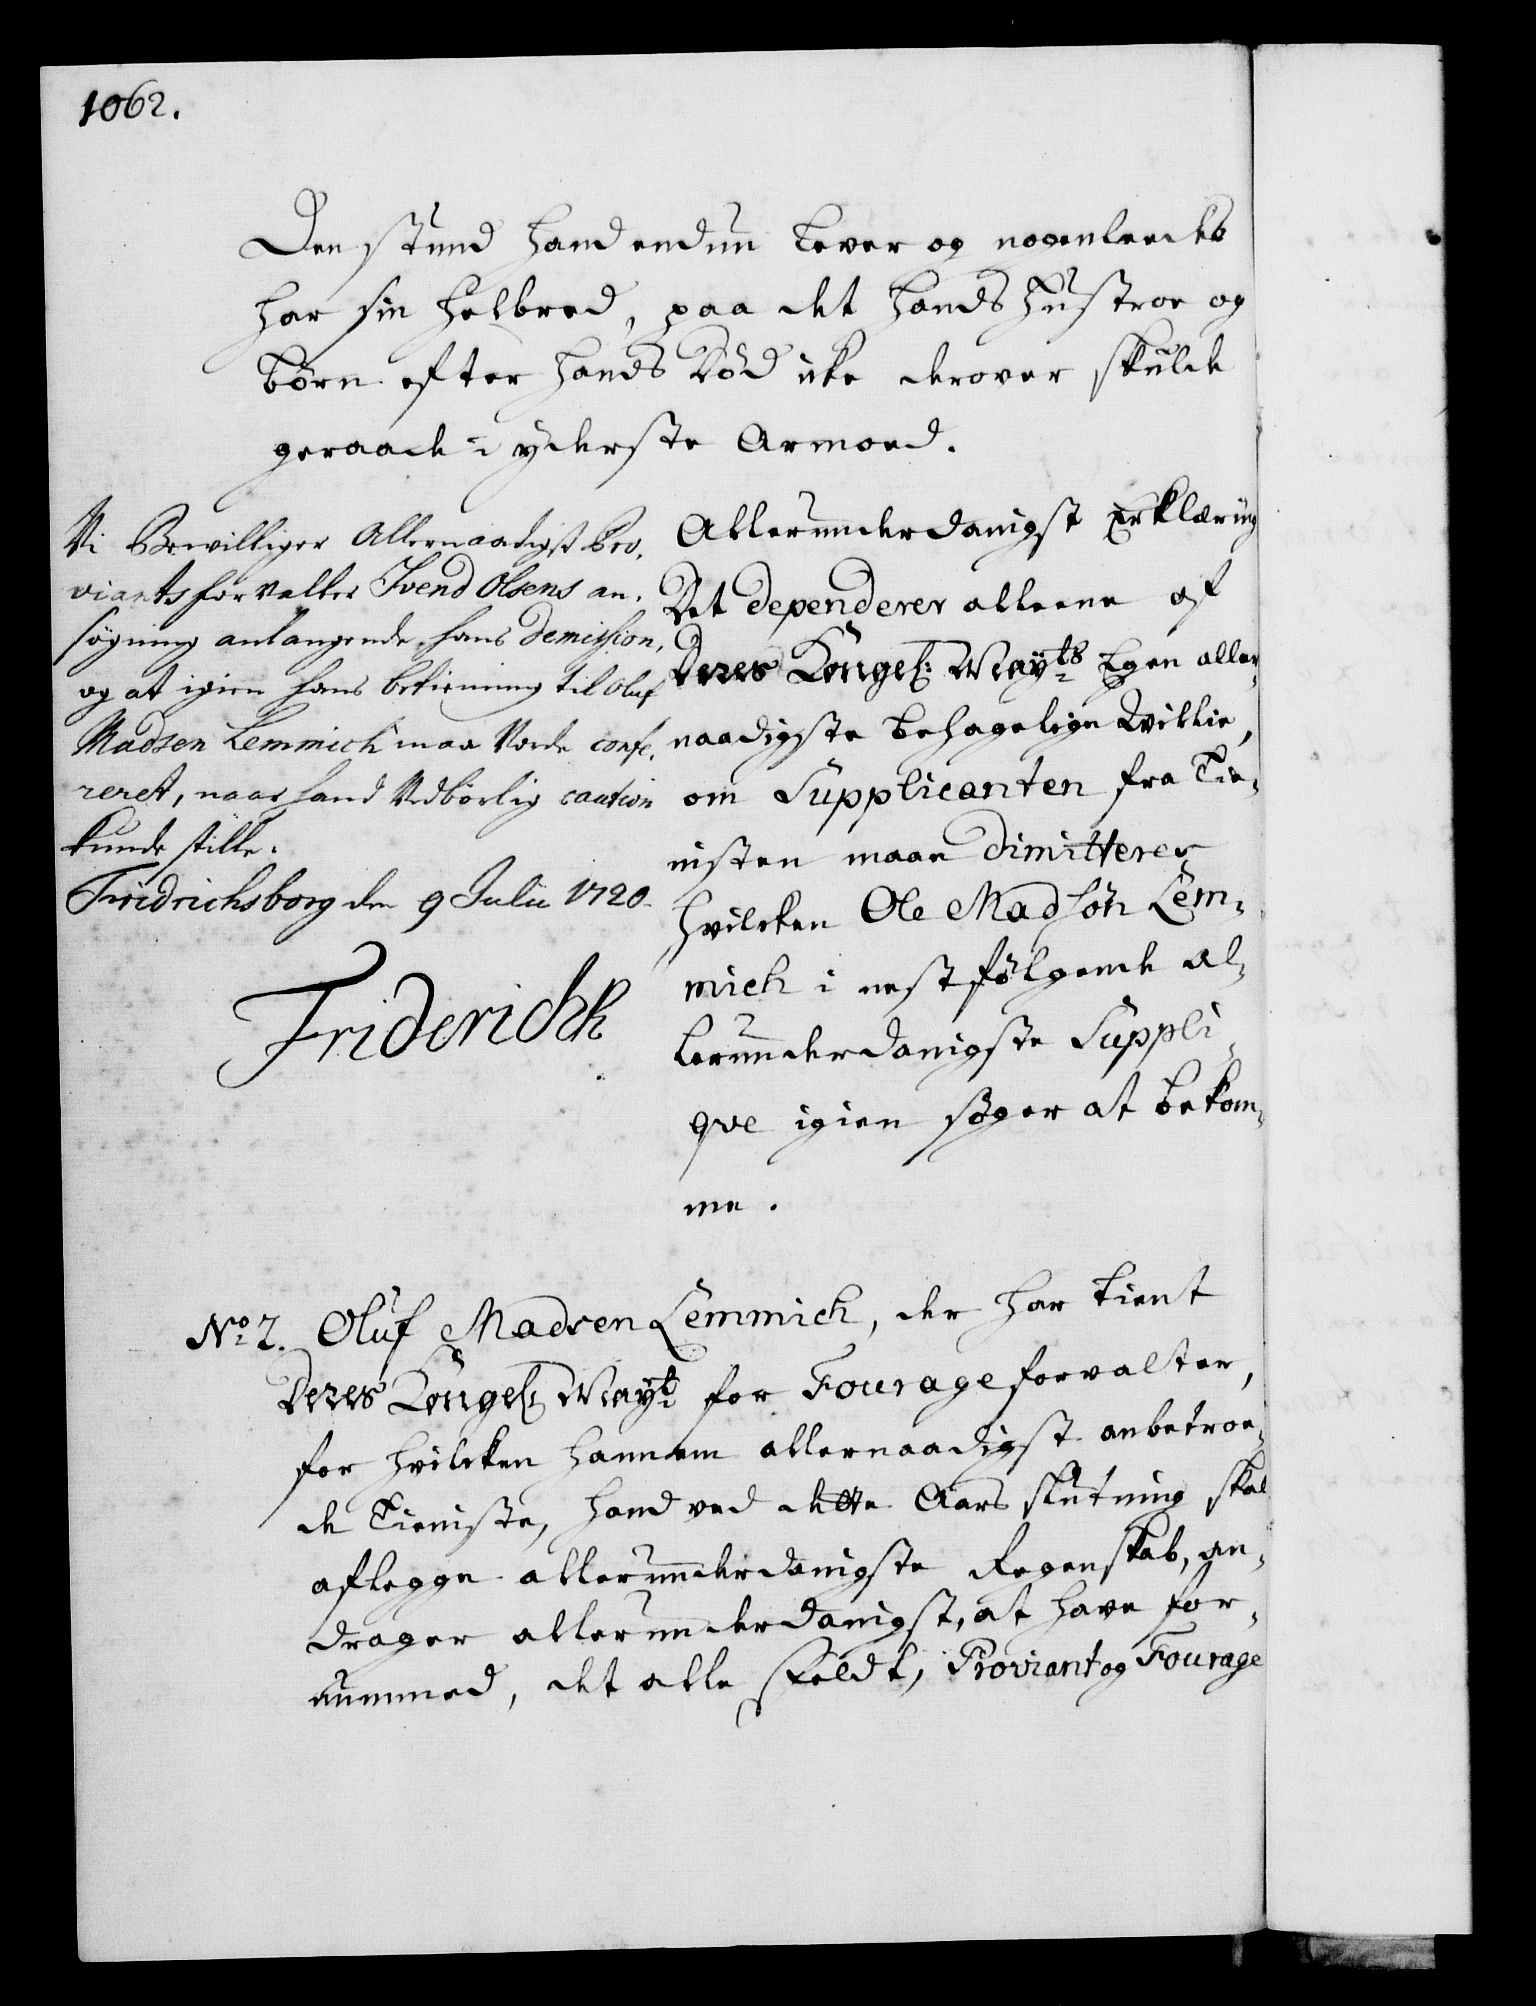 1062.
Den stund hand endnu lever og nogenleedes
har sin helbred, paa det hands Hustroe og
børn efter hands Død icke derover skulde
geraade i yderste Armoed.
Vi Bewilliger Allernaadigst Pro,
viantsforvalter Svend Olsens an,
søgning anlangende hans Demission,
og at igien hans betiening til Oluf
Madsen Lemmich maa Vorde confe,
reret, naar hand Vedbørlig caution
kunde stille.
Fridrichsborg den 9 Julii 1720.
Friderich R
Allerunderdanigst Erklæring
Det dependerer alleene af
Deres Kongel: Mayts Egen aller,
naadigste behagelige Villie,
om Supplicanten fra Tie,
nisten maae dimitteres
hvilcken Ole Madsøn Lem,
mich i nest følgende al,
lerunderdanigste Suppli,
qve igien søger at bekom,
me.
No 2. Oluf Madsen Lemmich, der har tient
Deres Kongel: Mayt for Fourage forvalter,
for hvilcken hannem allernaadigst anbetroe,
de Tieniste, hand ved dette Aars slutning skal
aflegge allerunderdanigste Regenskab, an,
drager allerunderdanigst, at have for,
nummed, det alle Feldt, Proviant og Fourage